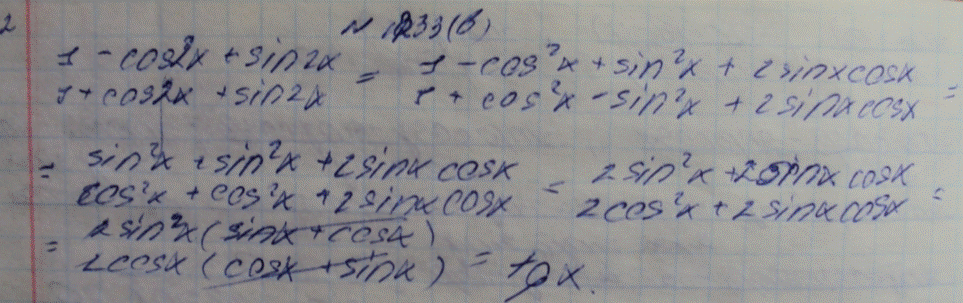 2
N 1233(б)
1 - cos2x + sin2x / 1 + cos2x + sin2x = 1 - cos²x + sin²x + 2sinxcosx / 1 + cos²x - sin²x + 2sinxcosx =
= sin²x + sin²x + 2sinx cosx / cos²x + cos²x + 2sinx cosx = 2sin²x + 2sinx cosx / 2cos²x + 2sinxcosx =
= 2sin²x (sinx + cosx) / 2cosx (cosx + sinx) = tgx.